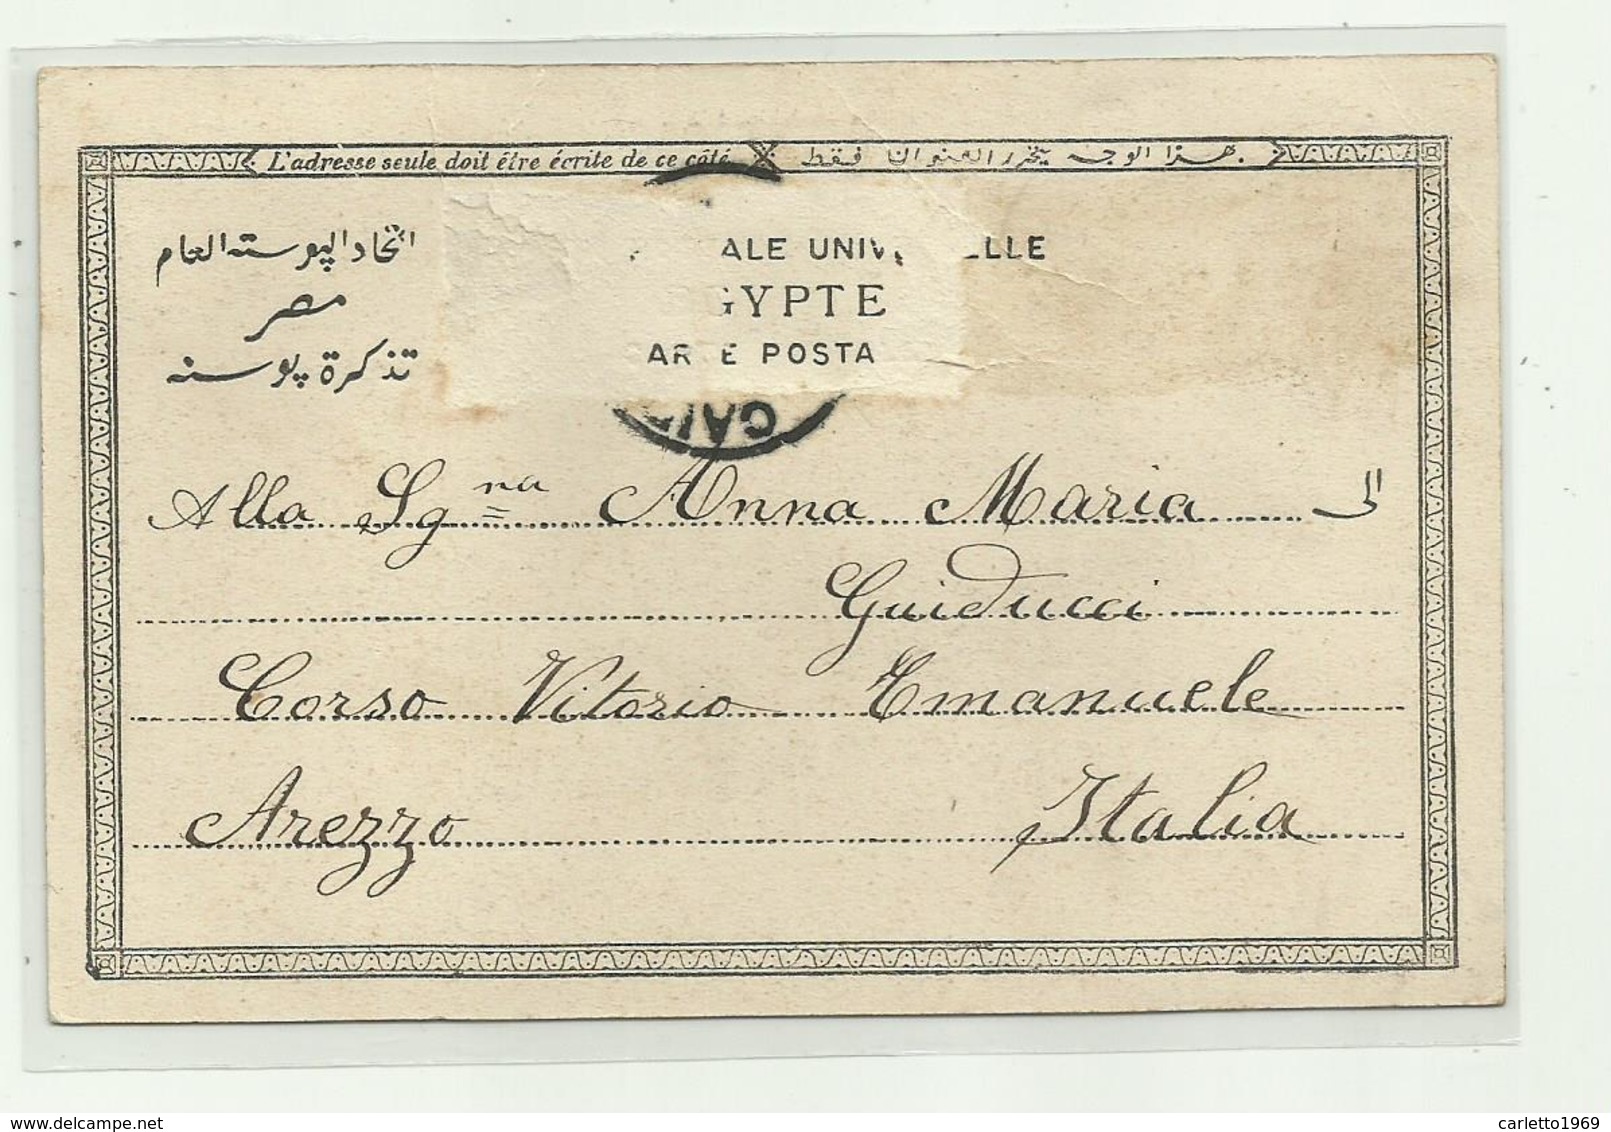 L'adresse seule doit être écrite de ce côté
بهذا الوجه يتحرر العنوان فقط
اتحاد البوسته العام
مصر
تذكرة بوسته
ALE UNIV LLE
GYPTE
AR E POSTA
CAI
Alla Sg.na Anna Maria
Guiducci
Corso Vitorio Emanuele
Arezzo Italia
delcampe.net
carletto1969